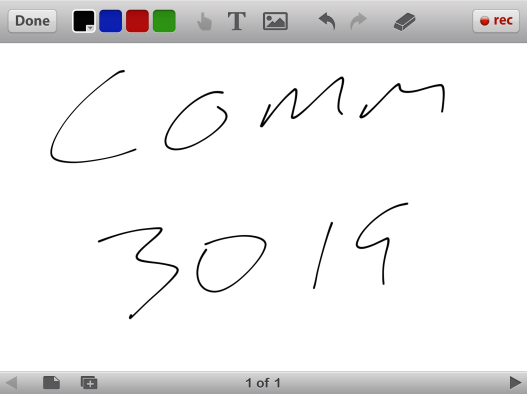 Done
T
rec
Comm
3019
1 of 1